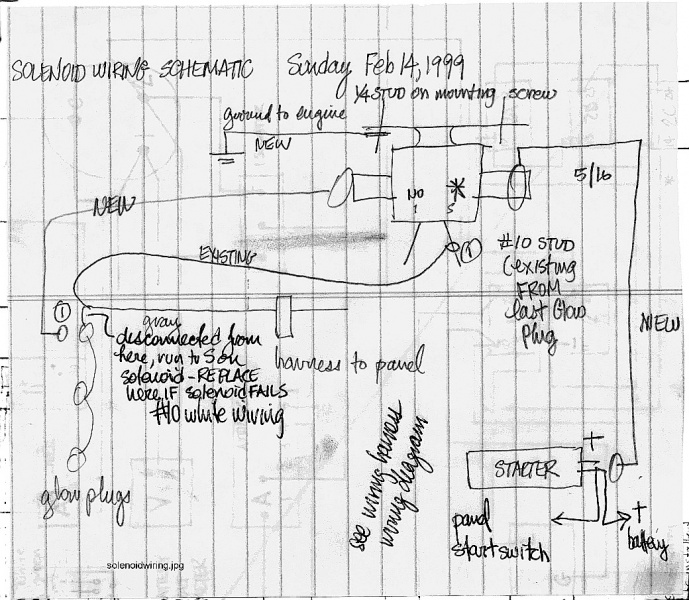 SOLENOID WIRING SCHEMATIC Sunday Feb 14, 1999
1/4 STUD on mounting screw
ground to engine
NEW
5/16
NO
I S
NEW
EXISTING
1
#10 STUD
(existing
FROM
last Glow
Plug
NEW
1
gray
disconnected from
here, run to S on
solenoid - REPLACE
here IF solenoid FAILS
#10 white wiring
harness to panel
see wiring harness
wiring diagram
STARTER
+
panel
start switch
+
battery
glow plugs
solenoidwiring.jpg